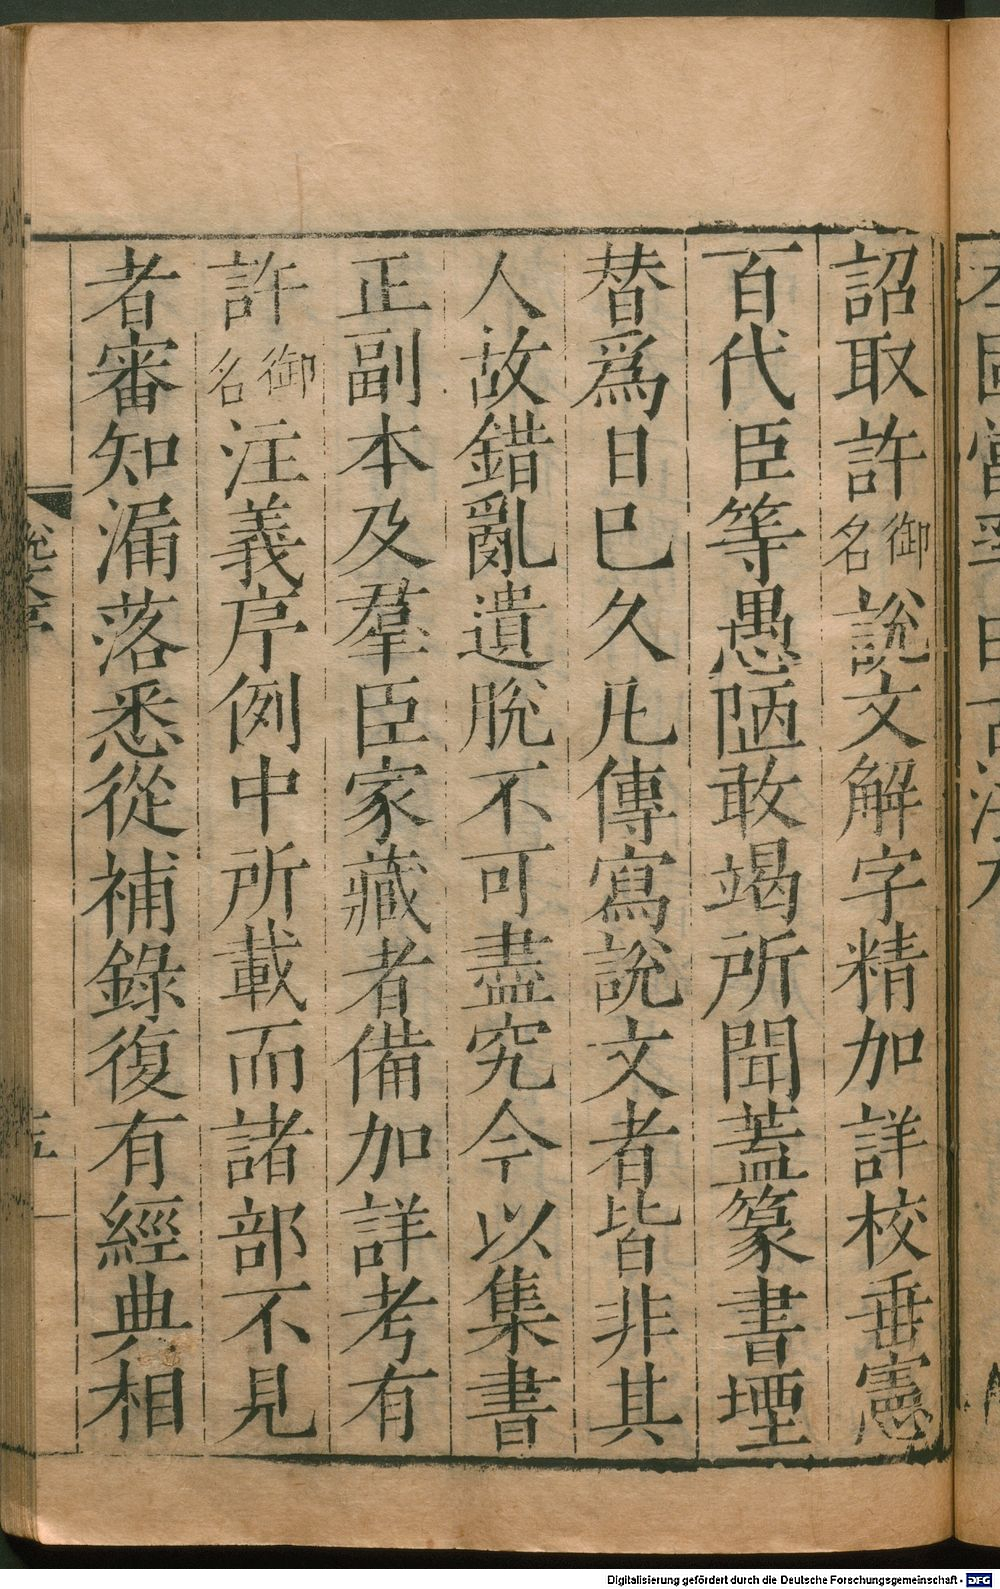 詔取許御名說文解字精加詳校垂憲
百代臣等愚陋敢竭所聞蓋篆書堙
替爲日巳久凡傳寫說文者皆非其
人故錯亂遺脫不可盡究今以集書
正副本及羣臣家藏者備加詳考有
許御名注義序例中所載而諸部不見
者審知漏落悉從補錄復有經典相
Digitalisierung gefördert durch die Deutsche Forschungsgemeinschaft - DFG